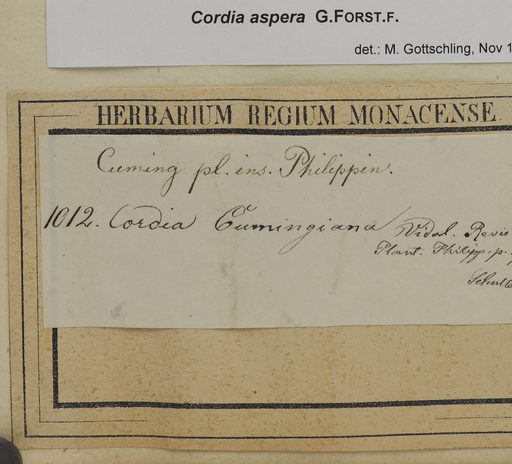 Cordia aspera G.FORST.F.
det.: M. Gottschling, Nov 1
HERBARIUM REGIUM MONACENSE.
Cuming pl. ins. Philippin.
1012. Cordia Cumingiana Vidal. Revis
Plant. Philipp. p.